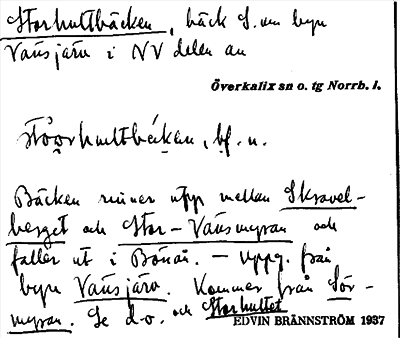 Storhuttbäcken, bäck S. om byn
Vänsjärv i NV delen av
Överkalix sn o. tg Norrb. l.
bf. u.
Bäcken rinner upp mellan Skravel-
berget och Stor-Vänsmyran och
faller ut i Bönån. – Uppg. från
byn Vänsjärv. Kommer från Sör-
myran. Se d.o. och Storhuttet
EDVIN BRÄNNSTRÖM 1937